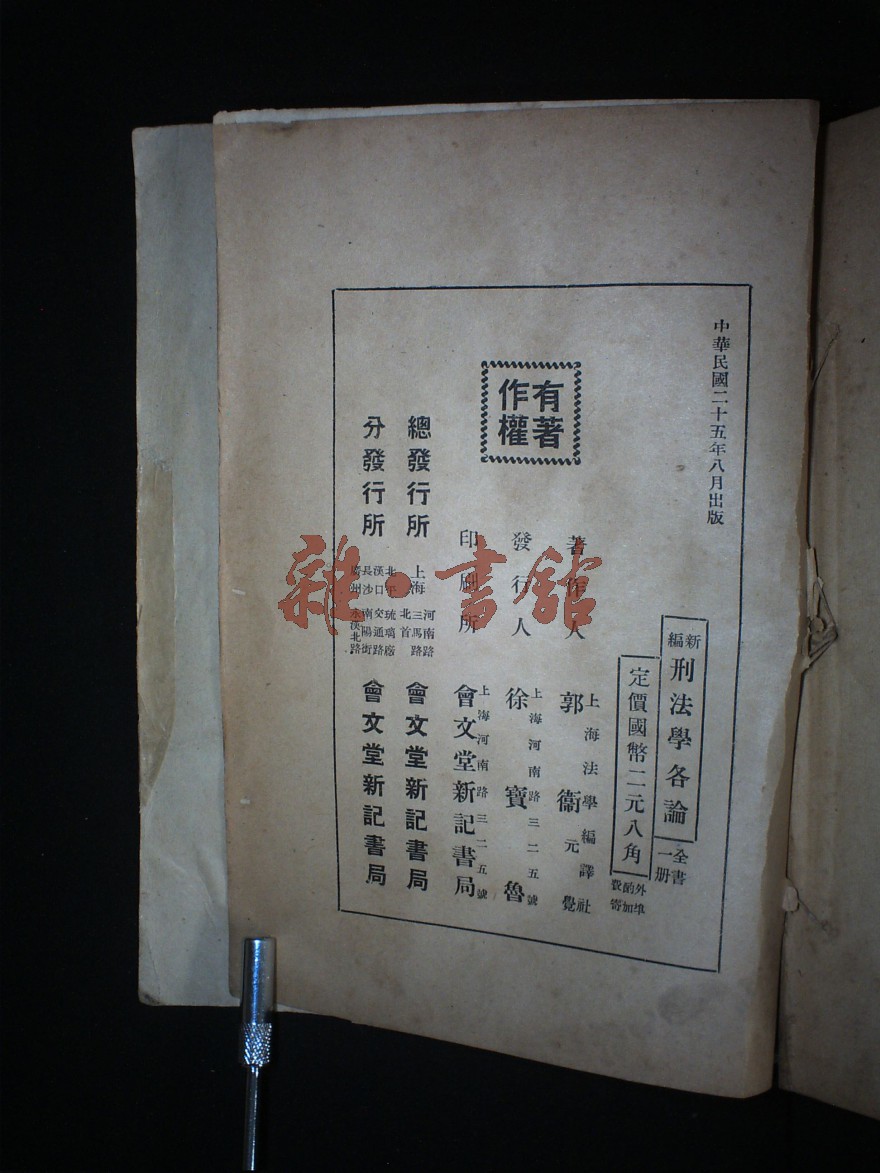 中華民國二十五年八月出版
新編
刑法學各論
全書一册
定價國幣二元八角
外埠酌加寄費
有著作權
著作人
上海法學編譯社
郭衞
元覺
發行人
上海河南路三二五號
徐寶魯
印刷所
上海河南路三二五號
會文堂新記書局
總發行所
上海
河南路三馬路北首
會文堂新記書局
分發行所
北平 琉璃廠
漢口 交通路
長沙 南陽街
廣州 永漢北路
會文堂新記書局
雜·書館